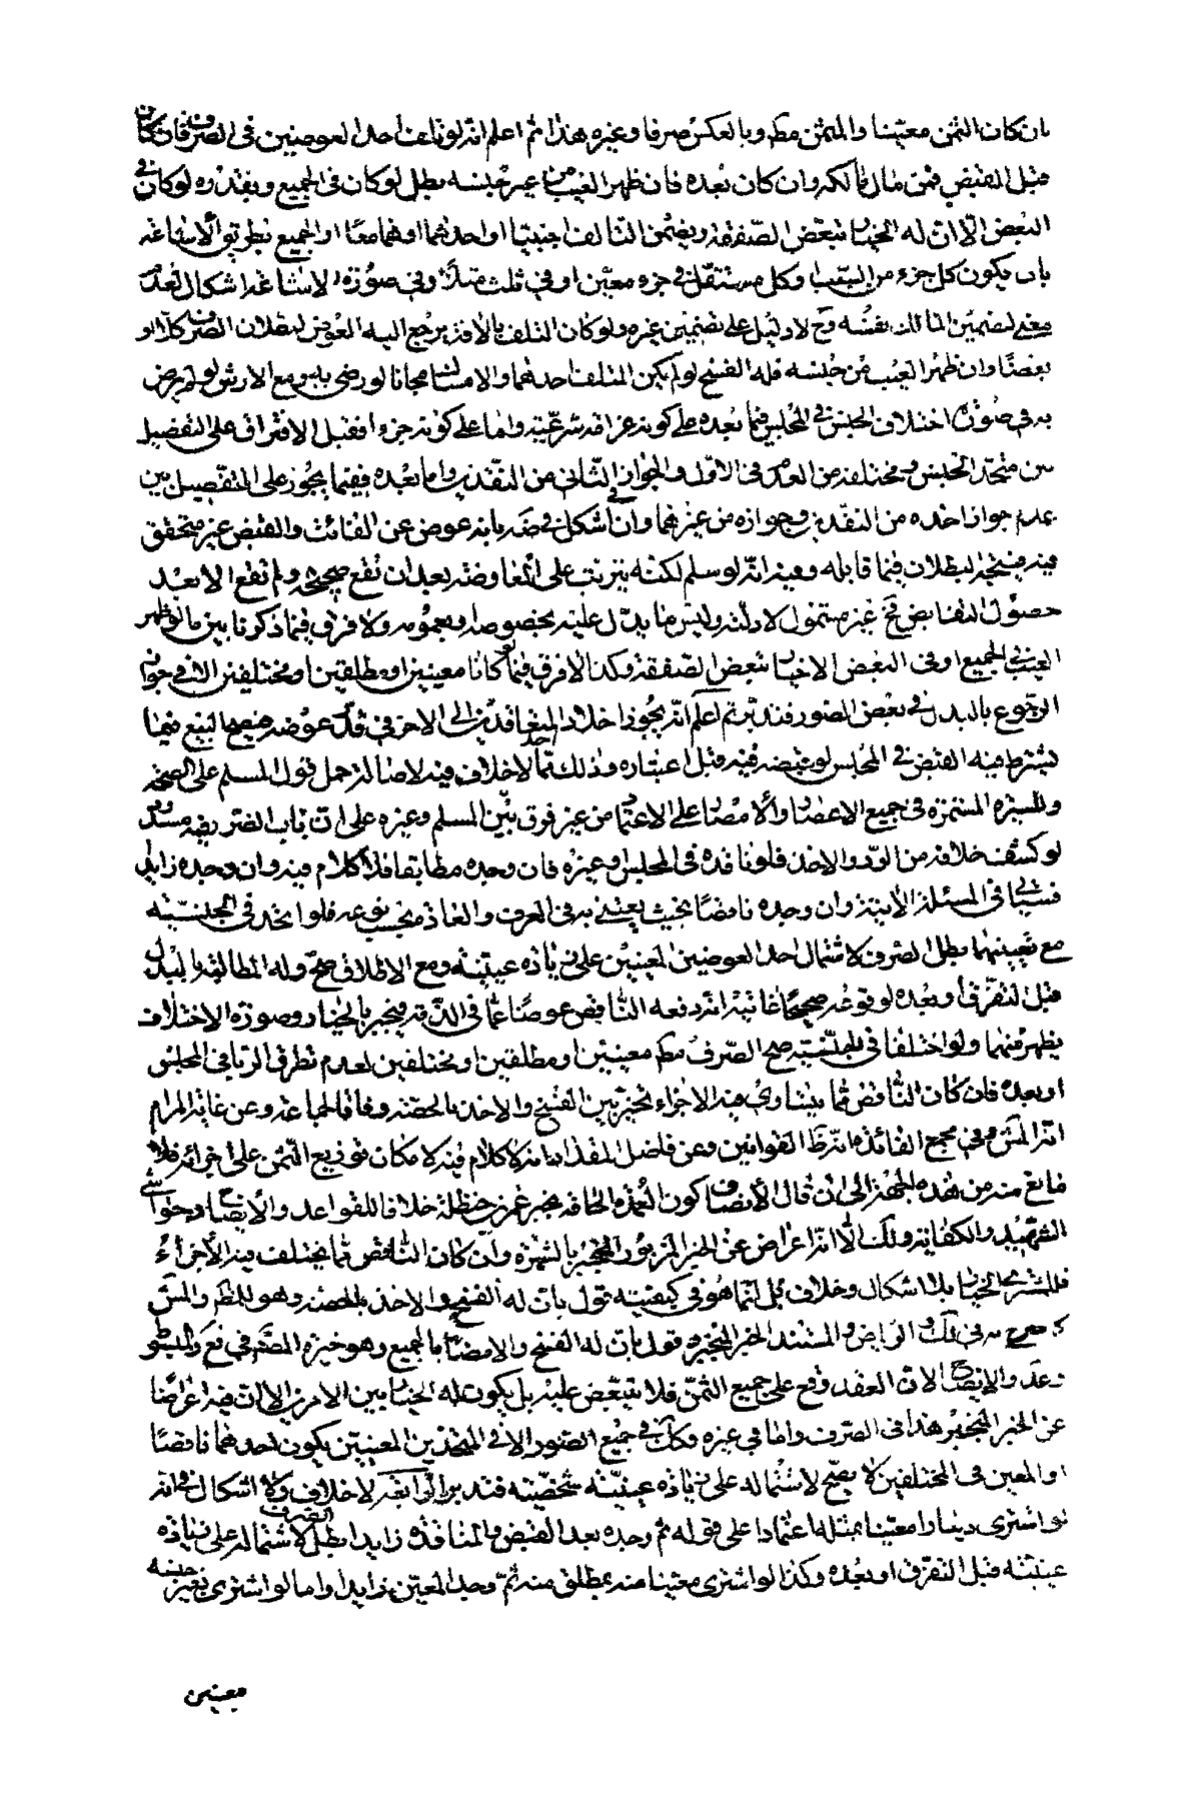 بان كان الثمن معيّنا والمثمن مطم وبالعكس صرفا وغيره هذا ثم اعلم انه لو تلف احد العوضين في الصرف فان كان
قبل القبض فمن مال مالكه وان كان بعده فان ظهر العيب من غير جنسه بطل لو كان في الجميع وبقدره لو كان في
البعض الّا ان له الخيار لتبعّض الصّفقة ويضمن التالف اجنبيّا او احدهما او هما معًا او الجميع بطريق الاشاعة
بان يكون كل جزء من السبب وكل مستقل في جزء معيّن او في ثلث مثلاً وفي صورة الاشاعة اشكال لعدم
معنى لتضمين المالك نفسه وح لا دليل على تضمين غيره ولو كان التلف بالافة يرجع اليه العوض لبطلان الصرف كلا او
بعضًا وان ظهر العيب من جنسه فله الفسخ لو لم يكن المتلف احدهما والامساك مجانا لو رضى به ومع الارش لو لم يرض
به في صورة اختلاف الجنس في المجلس فما بعده على كونه غرامة شرعيّة واما على كونه جزءا فقبل الافتراق على التفصيل
بين متحد الجنس ومختلفه من العدم في الاول والجواز في الثاني من النقدين واما بعده فيما يجوز على التفصيل بين
عدم جواز اخذه من النقدين وجوازه من غيرهما وان اشكل في ضه بانه عوض عن الفائت والقبض غير متحقق
فيه فيتجه البطلان فيما قابله وفيه انّه لو سلم لكنّه يترتب على المعاوضة بعد ان تقع صحيحة ولم تقع الا بعد
حصول التقابض فح غير مشمول لادلته وليس ما يدلّ عليه بخصوصه او بعمومه ولا فرق فيما ذكرنا بين ما لو ظهر
العيب في الجميع او في البعض الا خيار تبعض الصّفقة وكذا لا فرق فيما لو كانا معينين او مطلقين او مختلفين الا في جواز
الرّجوع بالبدل في بعض الصور فتدبّر ثم اعلم انّه يجوز اخلاد احد المتعاقدين الى الاخر في قدر عوضه فيصح البيع فيما
يشترط فيه القبض في المجلس لو قبضه فيه قبل اعتباره وذلك ممّا لا خلاف فيه لاصالة حمل قول المسلم على الصحة
وللسيرة المستمرة في جميع الاعصار والامصار على الاعتماد من غير فرق بين المسلم وغيره على ان باب الضرر فيه مسدود
لو كشف خلافه من الرد والاخذ فلو ناقده في المجلس او غيره فان وجده مطابقا فلا كلام فيه وان وجده زايدا
فسيأتي في المسئلة الاتية وان وجده ناقصًا بحيث يعتني به في العرف والعادة بحسب نوعه فلو اتحد في الجنسيّة
مع تعيينهما بطل الصرف لاشتمال احد العوضين المعيّنين على زيادة عينيّة ومع الاطلاق صحّ وله المطالبة بالبدل
قبل التفرّق او بعده لوقوعه صحيحًا غايته انه دفعه الناقص عوضًا عمّا في الذّمة فيجبر بالخيار وصورة الاختلاف
يظهر منهما ولو اختلفا في الجنسيّة صح الصّرف مطم معينين او مطلقين او مختلفين لعدم تطرق الربا في المجلس
او بعده فان كان الناقص مما يتساوى فيه الاجزاء تخيّر بين الفسخ والاخذ بالحصّة وفاقا لجماعة وعن غاية المرام
انه المش وفي مجمع الفائدة انه ظ القوانين وعن فاضل المقداد انه لا كلام فيه لامكان توزيع الثّمن على اجزائه فلا
مانع منه من هذه الجهة الى ان قال الانصاف كون العمدة الحاقه بخبر عمر بن حنظلة خلافا للقواعد والايضاح وحواشي
الشهيد والكفاية وتلك الّا انه اعراض عن الخبر المزبور المنجبر بالشهرة وان كان الناقص مما يختلف فيه الاجزاء
فللمشتري الخيار بلا اشكال وخلاف بل انّما هو في كيفيته فقول بان له الفسخ والاخذ بالحصة وهو للظم والمش
كما صرح به في تلك والرياض والمستند الخبر المنجبر وقول بان له الفسخ والامضاء بالجميع وهو خيرة المصنّف في فع والمبسوط
وعد والايضاح لان العقد وقع على جميع الثمن فلا يتبعّض عليه بل يكون له الخيار بين الامرين الا ان فيه اعراضًا
عن الخبر المنجبر هذا في الصرف واما في غيره فكك في جميع الصور الا في المتحدين المعينين يكون احدهما ناقصًا
او المعين في المختلفين لا يصحّ لاشتماله على زيادة عينيّة شخصيّة فتدبر الرابعة لا خلاف ولا اشكال في انه
لو اشترى دينارا معيّنا بمثله اعتمادا على قوله ثم وجده بعد القبض والمناقدة زايدا بطل الصرف لاشتماله على زيادة
عينيّة قبل التفرّق او بعده وكذا لو اشترى معيّنا منه بمطلق منه ثمّ وجد المعيّن زايدا واما لو اشترى بغير جنسه
معينين